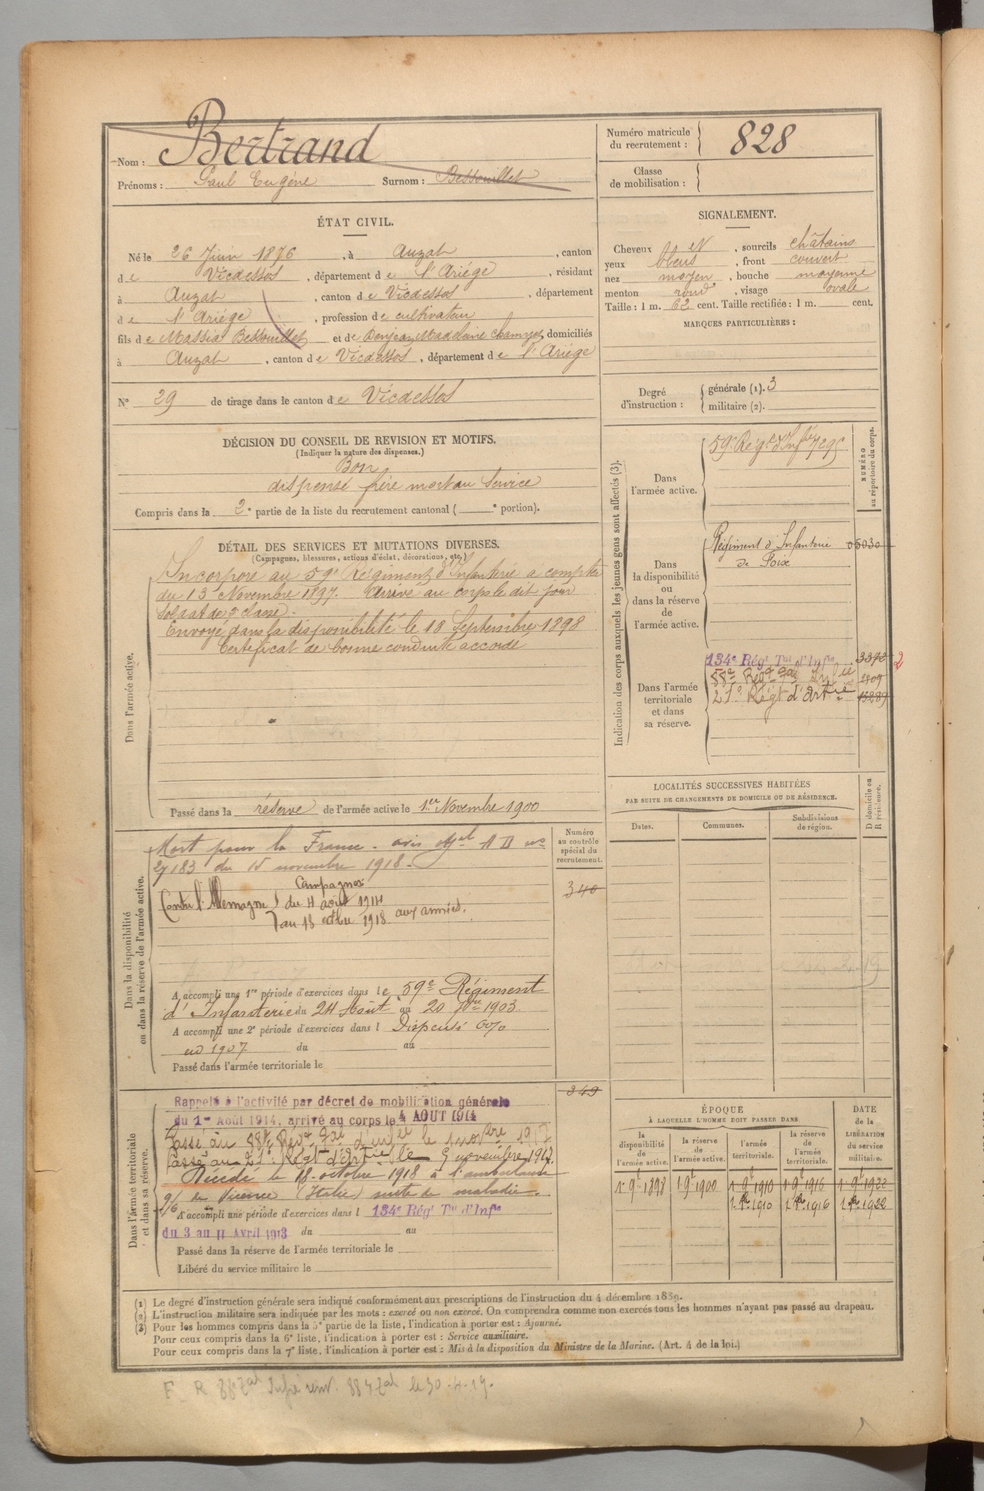 Nom : Bertrand
Prénoms : Paul Eugène Surnom : Bessouillet
Numéro matricule du recrutement : 828
Classe de mobilisation :
ÉTAT CIVIL.
Né le 26 Juin 1876, à Auzat, canton
de Vicdessos, département de l'Ariége, résidant
à Auzat, canton de Vicdessos, département
de l'Ariége, profession de cultivateur
fils de Massia Bessouillet et de Madelaine, domiciliés
à Auzat, canton de Vicdessos, département de l'Ariége
N° 29 de tirage dans le canton de Vicdessos
SIGNALEMENT.
Cheveux N, sourcils châtains
yeux bleus, front couvert
nez moyen, bouche moyenne
menton rond, visage ovale
Taille : 1 m. 62 cent. Taille rectifiée : 1 m. cent.
MARQUES PARTICULIÈRES :
Degré d'instruction : générale (1). 3
militaire (2).
DÉCISION DU CONSEIL DE REVISION ET MOTIFS.
(Indiquer la nature des dispenses.)
Bon
dispensé frère mort au Service
Compris dans la 2e partie de la liste du recrutement cantonal ( e portion).
DÉTAIL DES SERVICES ET MUTATIONS DIVERSES.
(Campagnes, blessures, actions d'éclat, décorations, etc.)
Dans l'armée active.
Incorporé au 59e Régiment d'Infanterie à compter
du 13 Novembre 1897. Arrivé au corps le dit jour
Soldat de 2e classe.
Envoyé dans la disponibilité le 18 Septembre 1898
Certificat de bonne conduite accordé
Passé dans la réserve de l'armée active le 1er Novembre 1900
Indication des corps auxquels les jeunes gens sont affectés (3).
NUMÉRO au répertoire du corps.
Dans l'armée active.
59e Régt d'Infie 7295
Dans la disponibilité ou dans la réserve de l'armée active.
Régiment d'Infanterie 05030
de Foix
Dans l'armée territoriale et dans sa réserve.
134e Régt Tal d'Infie 3372
Régt d'artie
LOCALITÉS SUCCESSIVES HABITÉES
PAR SUITE DE CHANGEMENTS DE DOMICILE OU DE RÉSIDENCE.
Dates. Communes. Subdivisions de région. D domicile ou R résidence.
Dans la disponibilité ou dans la réserve de l'armée active.
Numéro au contrôle spécial du recrutement.
Mort pour la France. avis M D no
27183 du 15 novembre 1918.
340
Campagnes
Contre l'Allemagne du 4 août 1914
au 18 octbre 1918 aux armées.
A accompli une 1re période d'exercices dans le 59e Régiment
d'Infanterie du 24 Août au 20 7bre 1903
A accompli une 2e période d'exercices dans l Dispensé
en 1907 du au
Passé dans l'armée territoriale le
349
Dans l'armée territoriale et dans sa réserve.
Rappelé à l'activité par décret de mobilisation générale
du 1er Août 1914, arrivé au corps le 4 AOUT 1914
Passé au 88e Régt d'infie le 1917
Passé au 21e Régt d'Artie le 9 novembre 1917.
Décédé le 18 octobre 1918 à l'ambulance
9/6 de Vicence (Italie) suite de maladie.
A accompli une période d'exercices dans l 134e Régt Tal d'Infie
du 3 au 11 Avril 1913 du au
Passé dans la réserve de l'armée territoriale le
Libéré du service militaire le
ÉPOQUE
À LAQUELLE L'HOMME DOIT PASSER DANS
la disponibilité de l'armée active. la réserve de l'armée active. l'armée territoriale. la réserve de l'armée territoriale. DATE de la LIBÉRATION du service militaire.
1 9e 1898 1 9e 1900 1 9e 1910 1 9e 1916 1 9e 1922
1 8bre 1910 1 8bre 1916 1 8bre 1922
(1) Le degré d'instruction générale sera indiqué conformément aux prescriptions de l'instruction du 4 décembre 1889.
(2) L'instruction militaire sera indiquée par les mots : exercé ou non exercé. On comprendra comme non exercés tous les hommes n'ayant pas passé au drapeau.
(3) Pour les hommes compris dans la 5e partie de la liste, l'indication à porter est : Ajourné.
Pour ceux compris dans la 6e liste, l'indication à porter est : Service auxiliaire.
Pour ceux compris dans la 7e liste, l'indication à porter est : Mis à la disposition du Ministre de la Marine. (Art. 4 de la loi.)
le 30-4-19.